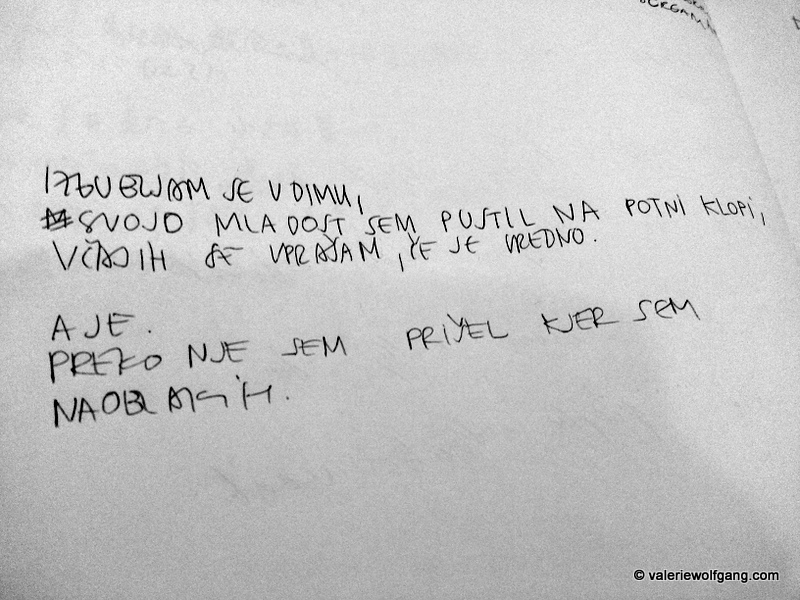 IZGUBLJAM SE V DIMU,
SVOJO MLADOST SEM PUSTIL NA POTNI KLOPI,
VČASIH SE VPRAŠAM, ČE JE VREDNO.
A JE.
PREKO NJE SEM PRIŠEL KJER SEM
NAOBLAČIH.
© valeriewolfgang.com